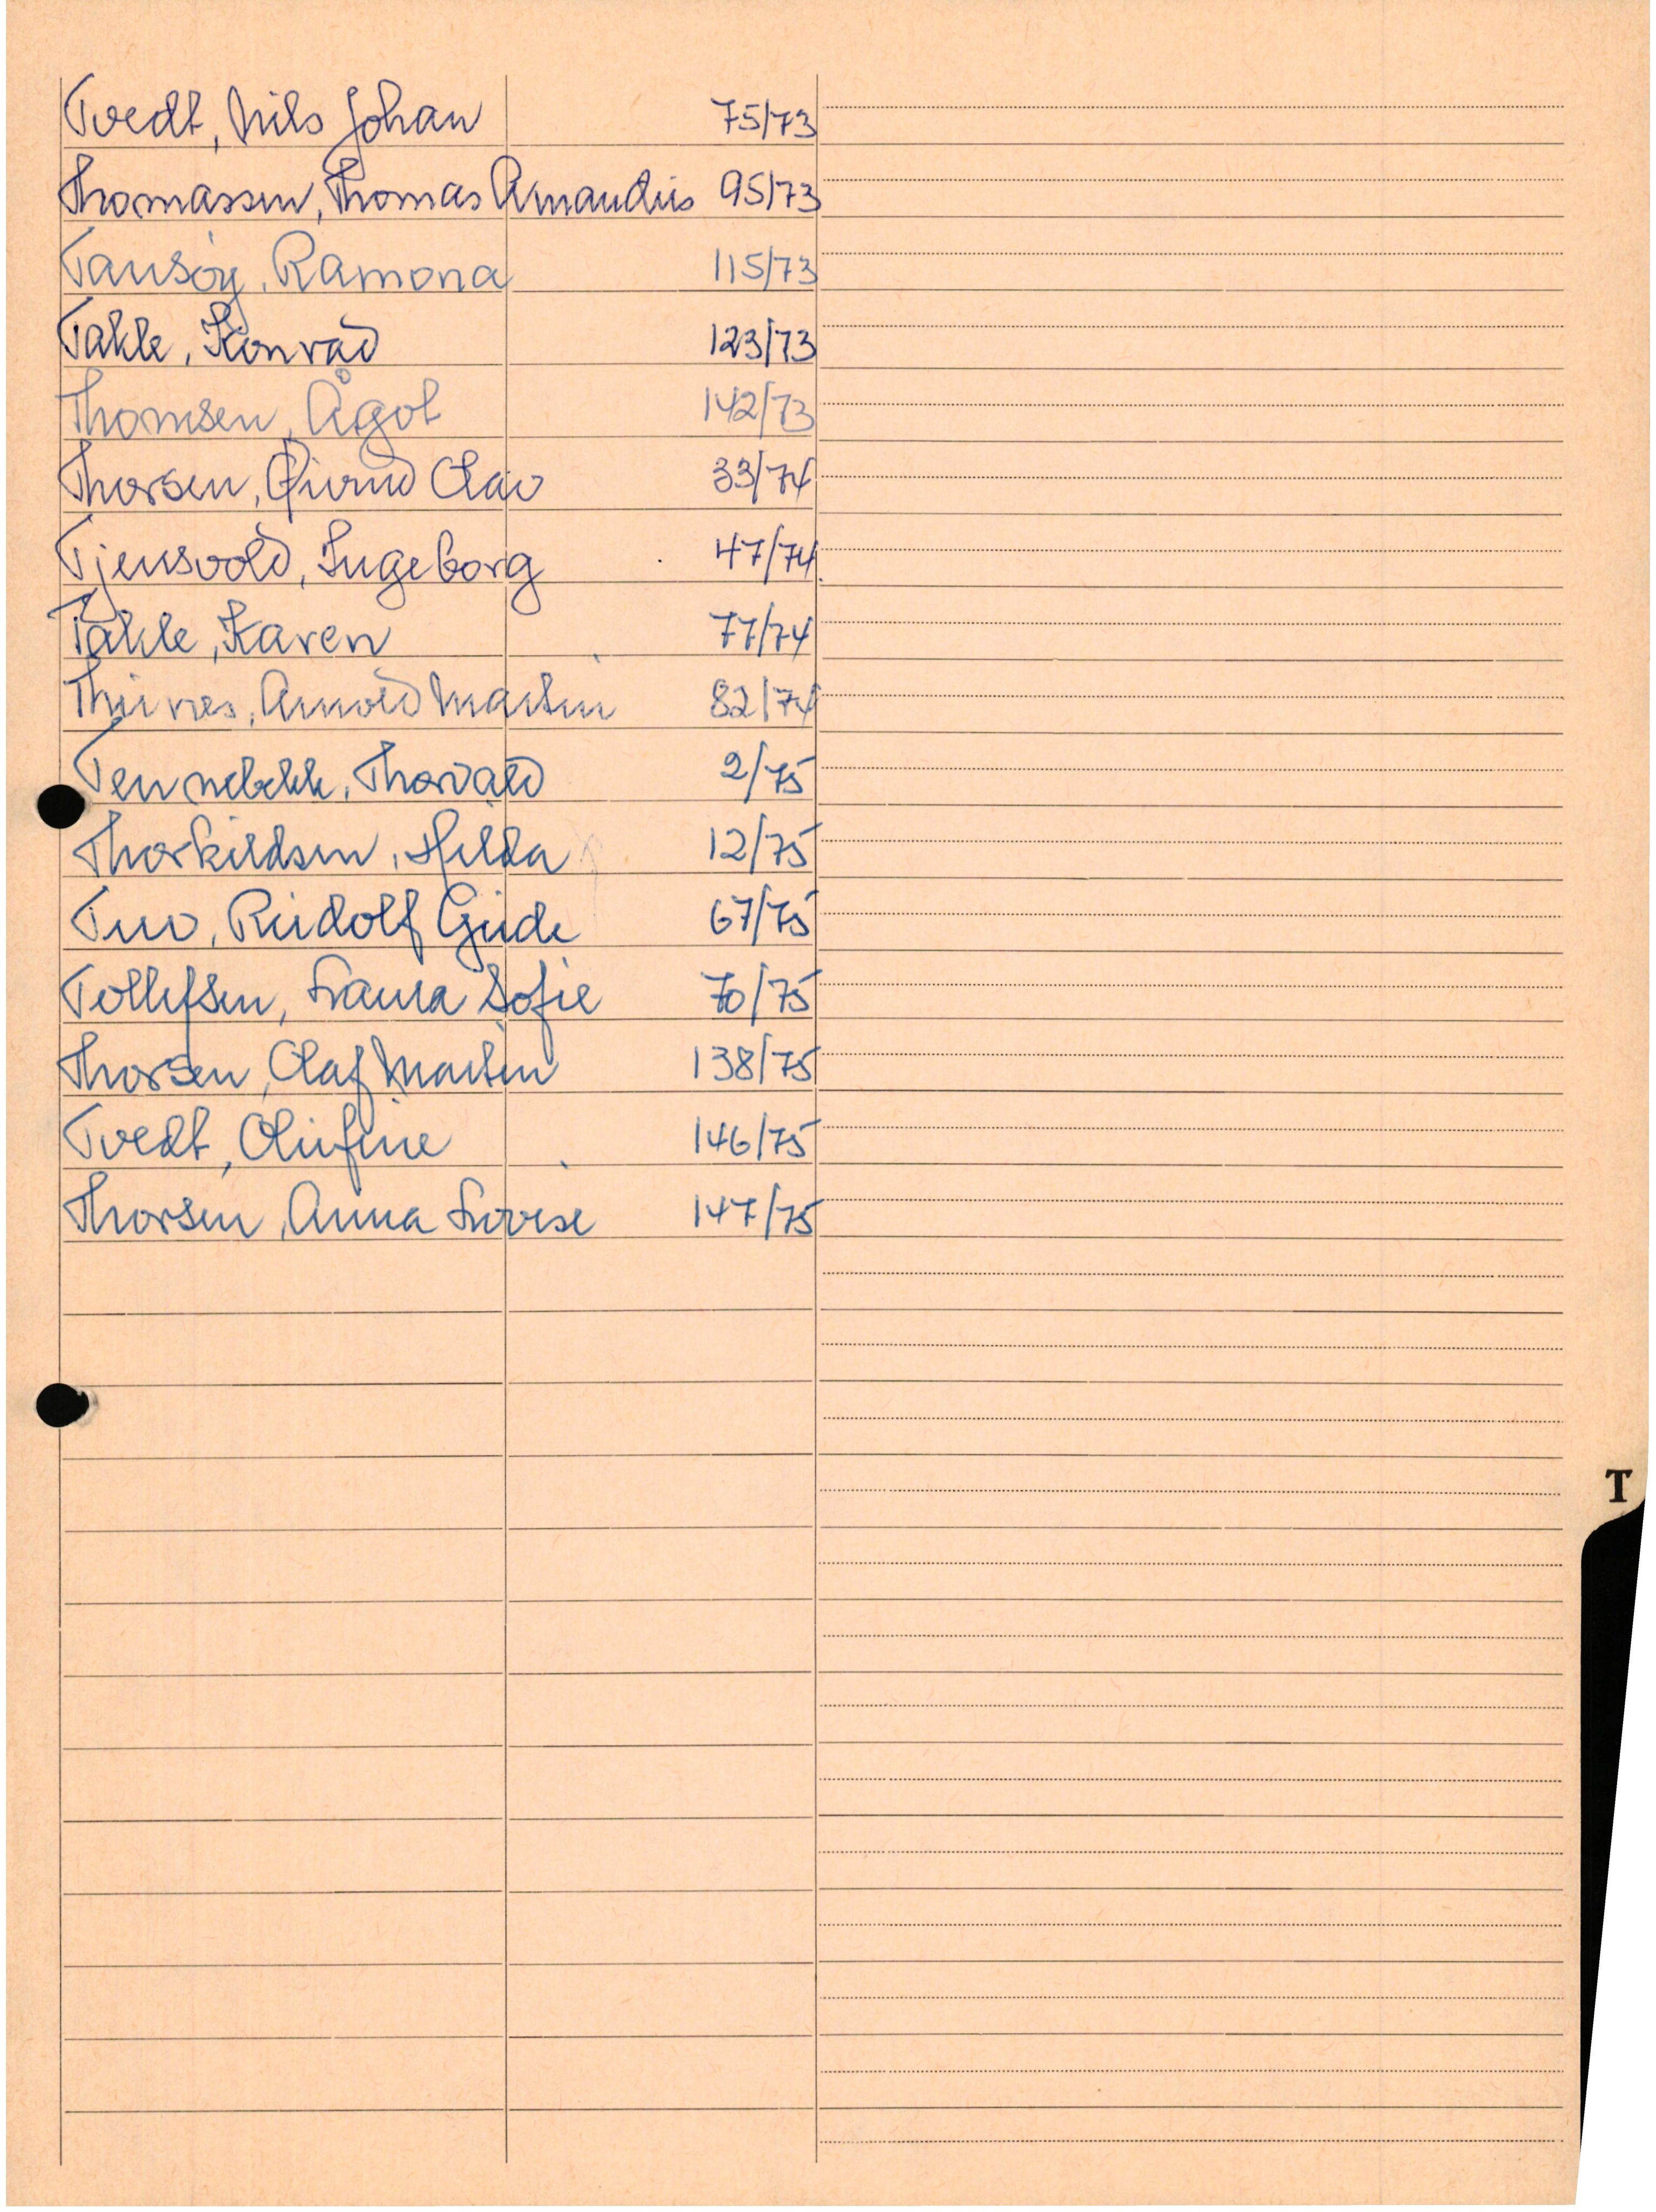 Tvedt, Nils Johan 75/73
Thomassen, Thomas Amandus 95/73
Tansøy, Ramona 115/73
Takle, Konrad 123/73
Thomsen, Ågot 142/73
Thorsen, Øivind Olav 33/74
Tjensvold, Ingeborg 47/74
Takle, Karen 77/74
Arnold Martin 82/74
Tennebekk, Thorvald 2/75
Thorkildsen, Hilda 12/75
Rudolf Gude 67/75
Tollefsen, Laura Sofie 70/75
Thorsen, Olaf Martin 138/75
Tvedt, Olufine 146/75
Thorsen, Anna Lovise 147/75
T